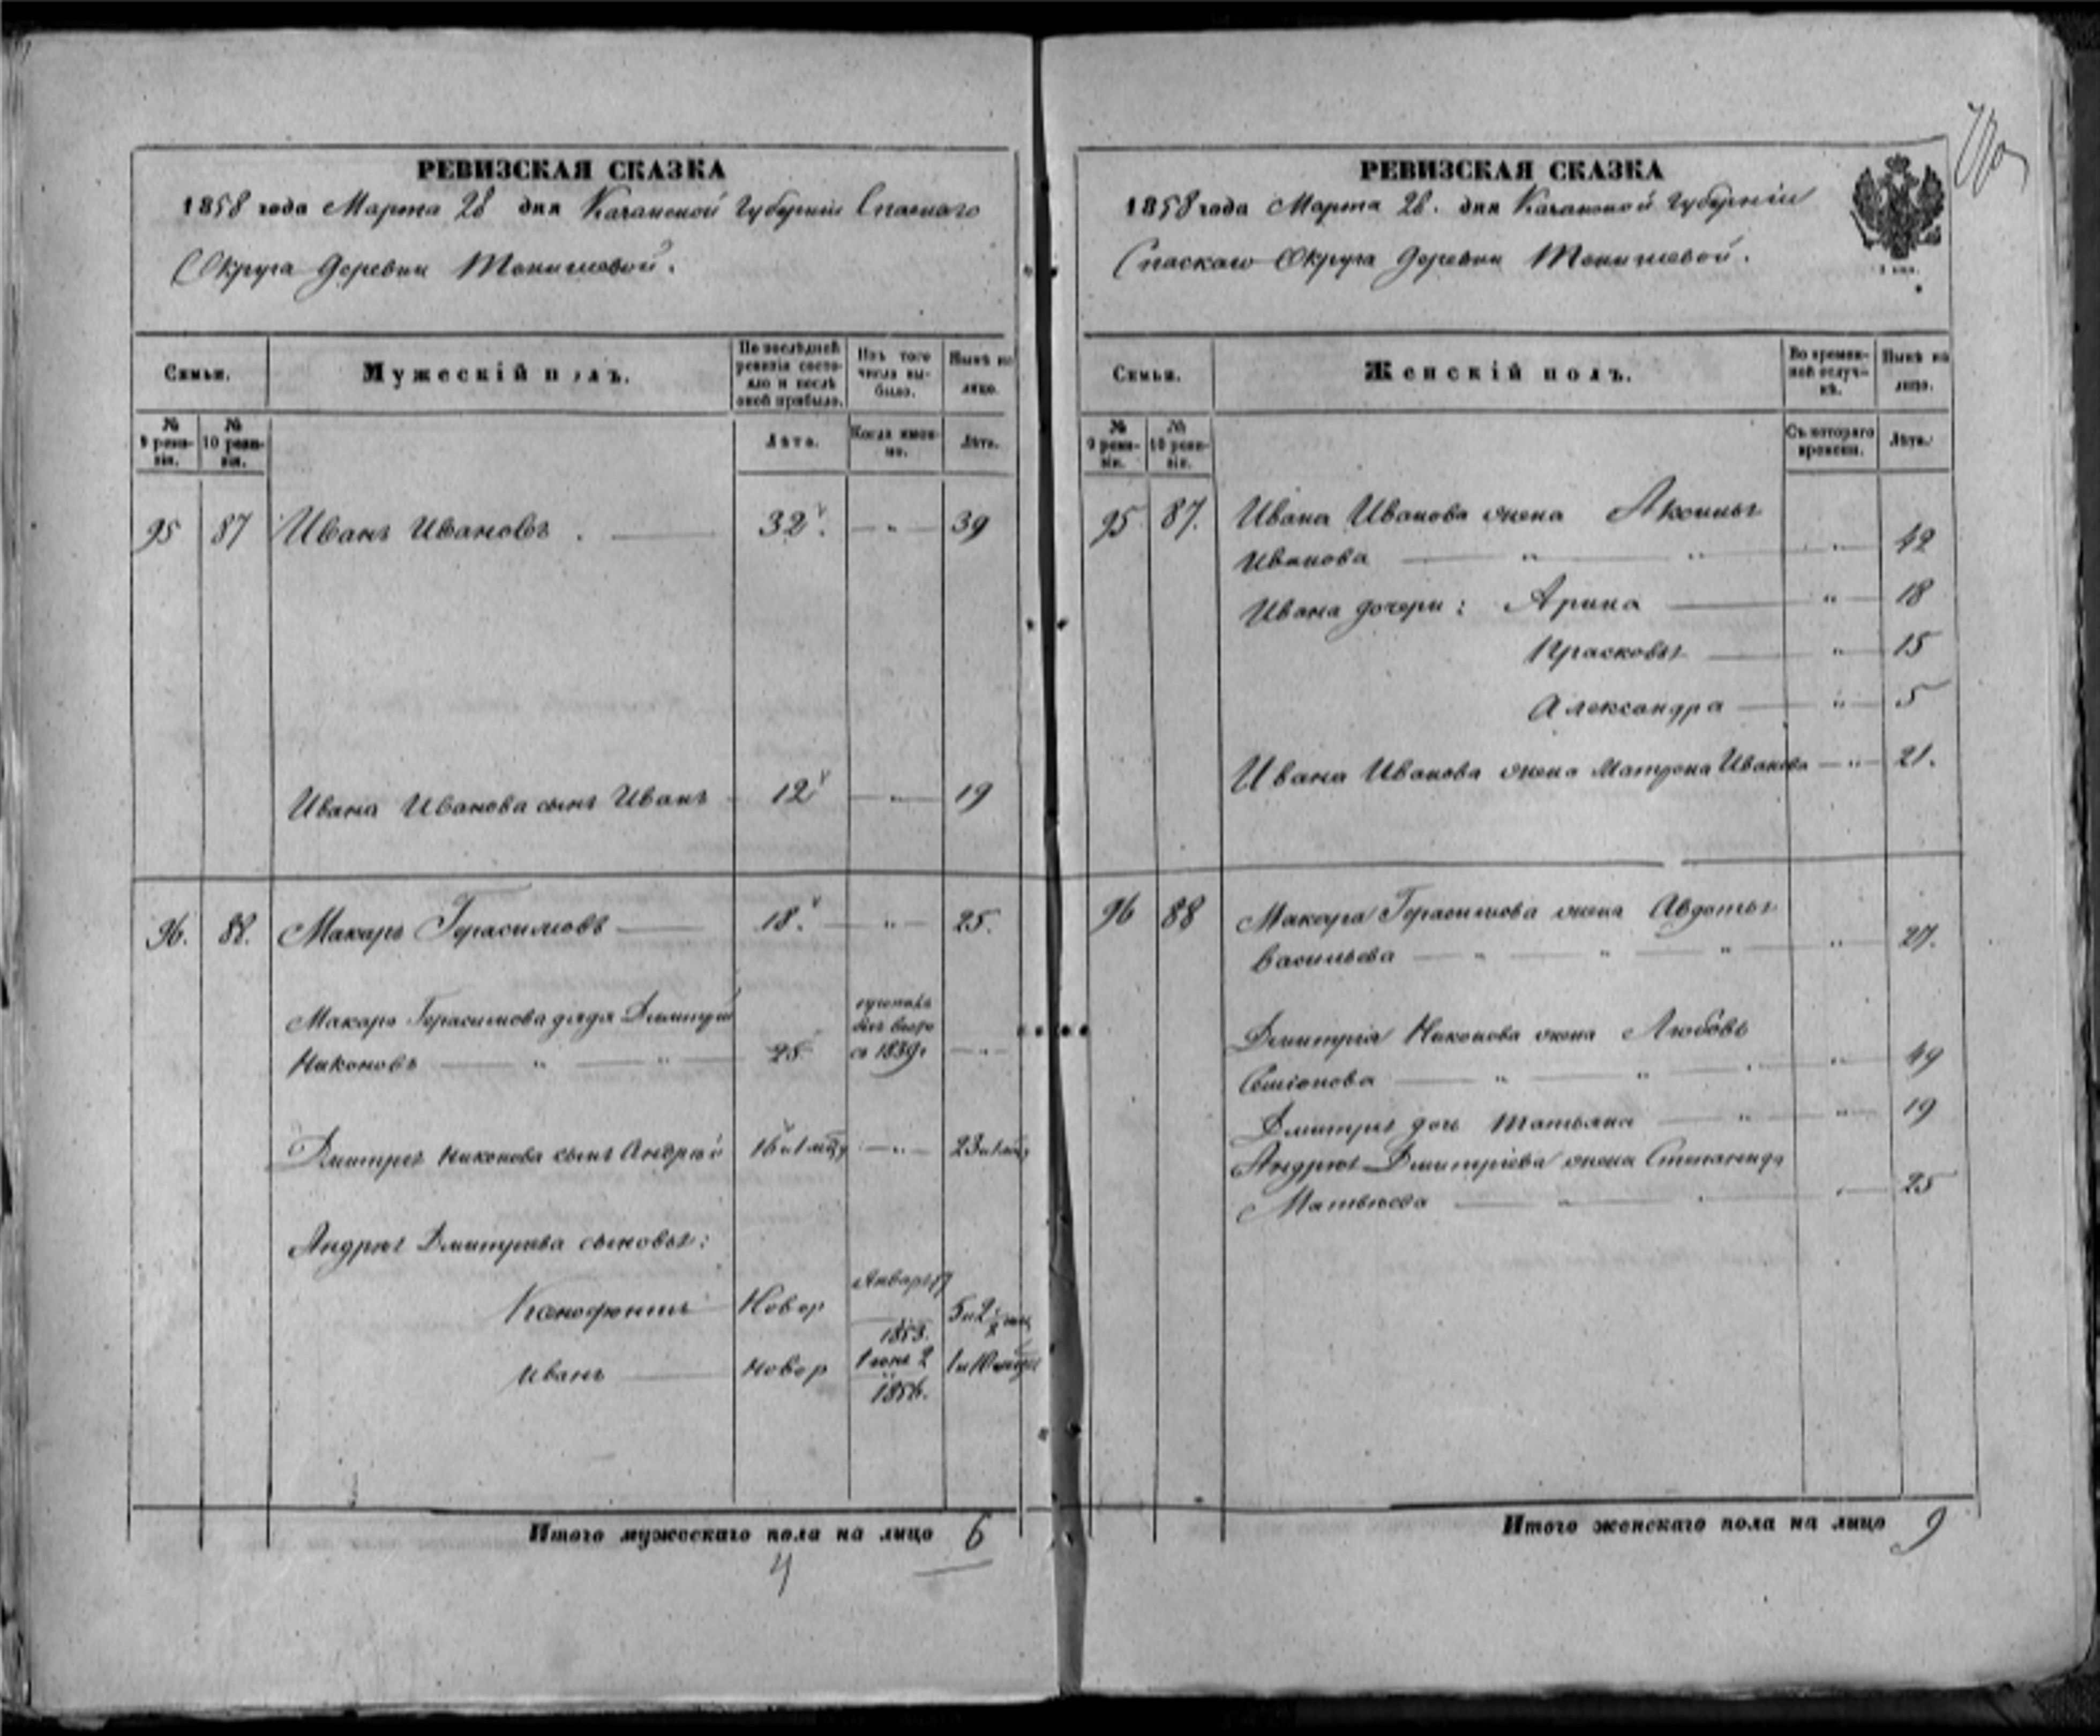 РЕВИЗСКАЯ СКАЗКА
1858 года Марта 28 дня Казанской Губерніи Спаскаго
Округа деревни
Семьи.
Мужескій полъ.
По послѣдней ревизіи состояло и послѣ оной прибыло.
Изъ того числа выбыло.
Нынѣ на лицо.
№ 9 ревизіи.
№ 10 ревизіи.
Лѣта.
Когда именно.
Лѣта.
95 87 Иванъ Ивановъ . 32. " 39
Ивана Иванова сынъ Иванъ 12 " 19
96. 88. Макаръ Герасимовъ 18. " 25.
Макара Герасимова дядя Дмитрій
Никоновъ " " 25 съ 1839 "
Дмитрія Никонова сынъ Андрей 16 и 1 мѣц " 23 и 1 мѣц
Андрея Дмитріева сыновья:
Ксенофонтъ Новор Января 17 1853. 5 и 2
Иванъ Новор Іюня 2 1856. 1 и 10 мѣц
Итого мужескаго пола на лицо 6
4
РЕВИЗСКАЯ СКАЗКА
1858 года Марта 28. дня Казанской Губерніи
Спаскаго Округа деревни
Семьи.
Женскій полъ.
Во временной отлучкѣ.
Нынѣ на лицо.
№ 9 ревизіи.
№ 10 ревизіи.
Съ котораго времени.
Лѣта.
95 87. Ивана Иванова жена
Иванова " " " 42
Ивана дочери: Арина " 18
Прасковья " 15
Александра " 5
Ивана Иванова жена Матрона Иванова " 21.
96 88 Макара Герасимова жена Авдотья
Васильева " " " " 27.
Дмитрія Никонова жена Любовь
Семіонова " " " 49
Дмитрія дочь Татьяна " " 19
Андрея Дмитріева жена Степанида
Матвѣева " " 25
Итого женскаго пола на лицо 9